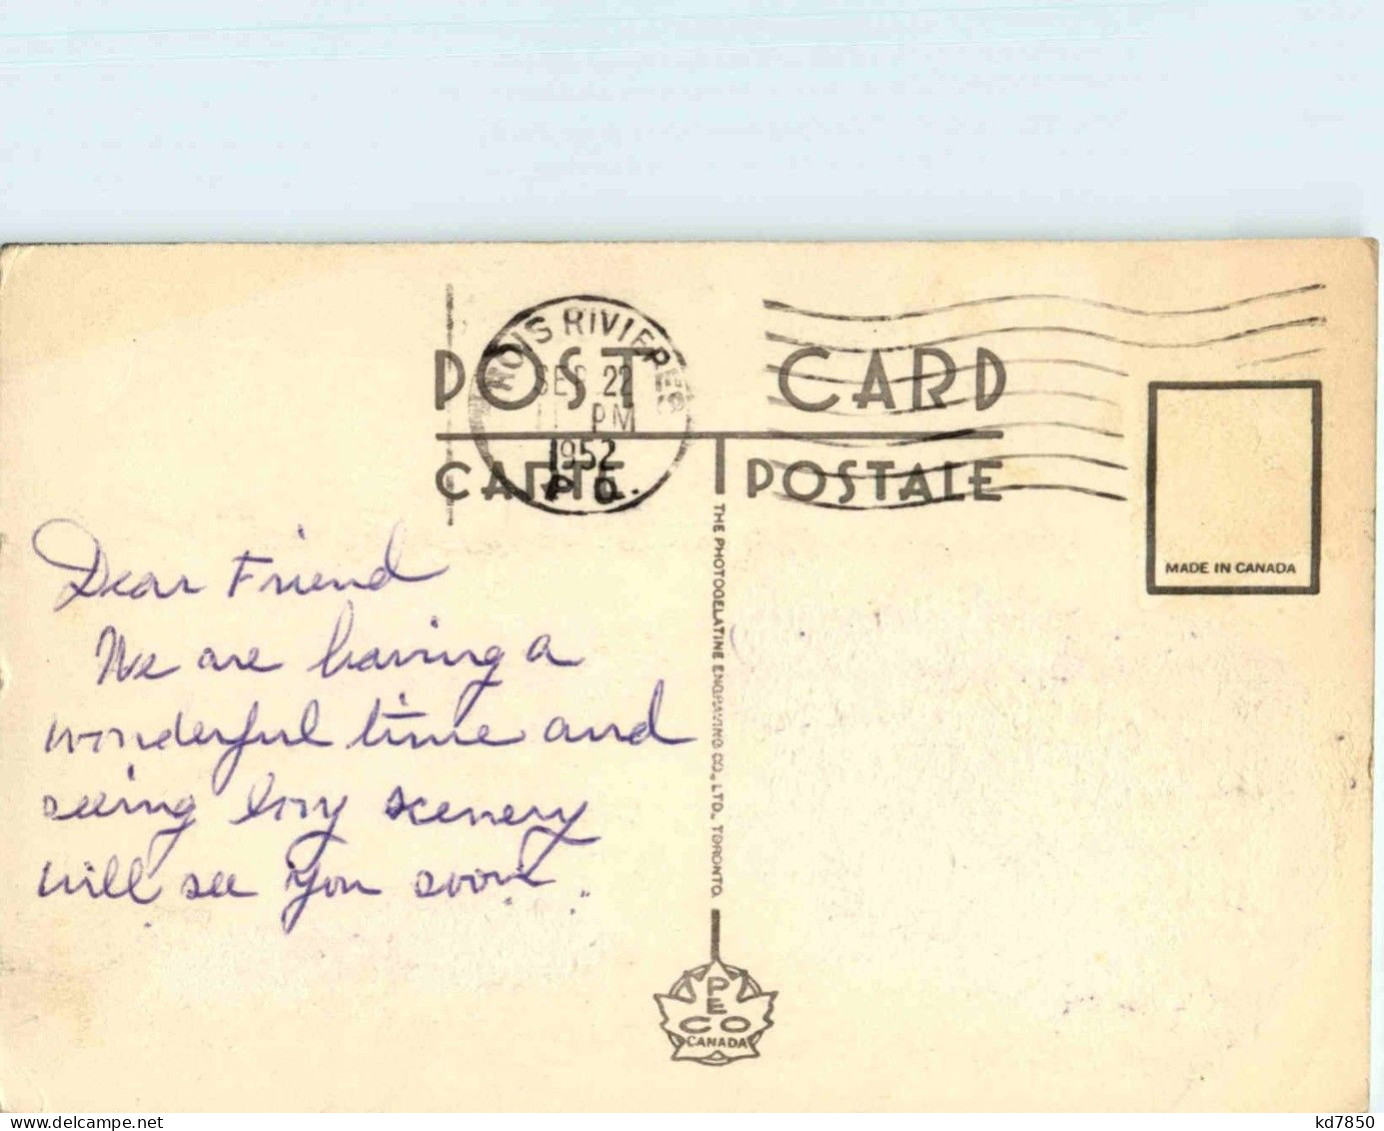 ROIS RIVIERES
SEP 22
PM
1952
P. Q.
POST CARD
CARTE POSTALE
MADE IN CANADA
THE PHOTOGELATINE ENGRAVING CO., LTD., TORONTO.
Dear Friend
We are having a
wonderful time and
seeing lovy scenery
will see you soon.
PECO
CANADA
kd7850